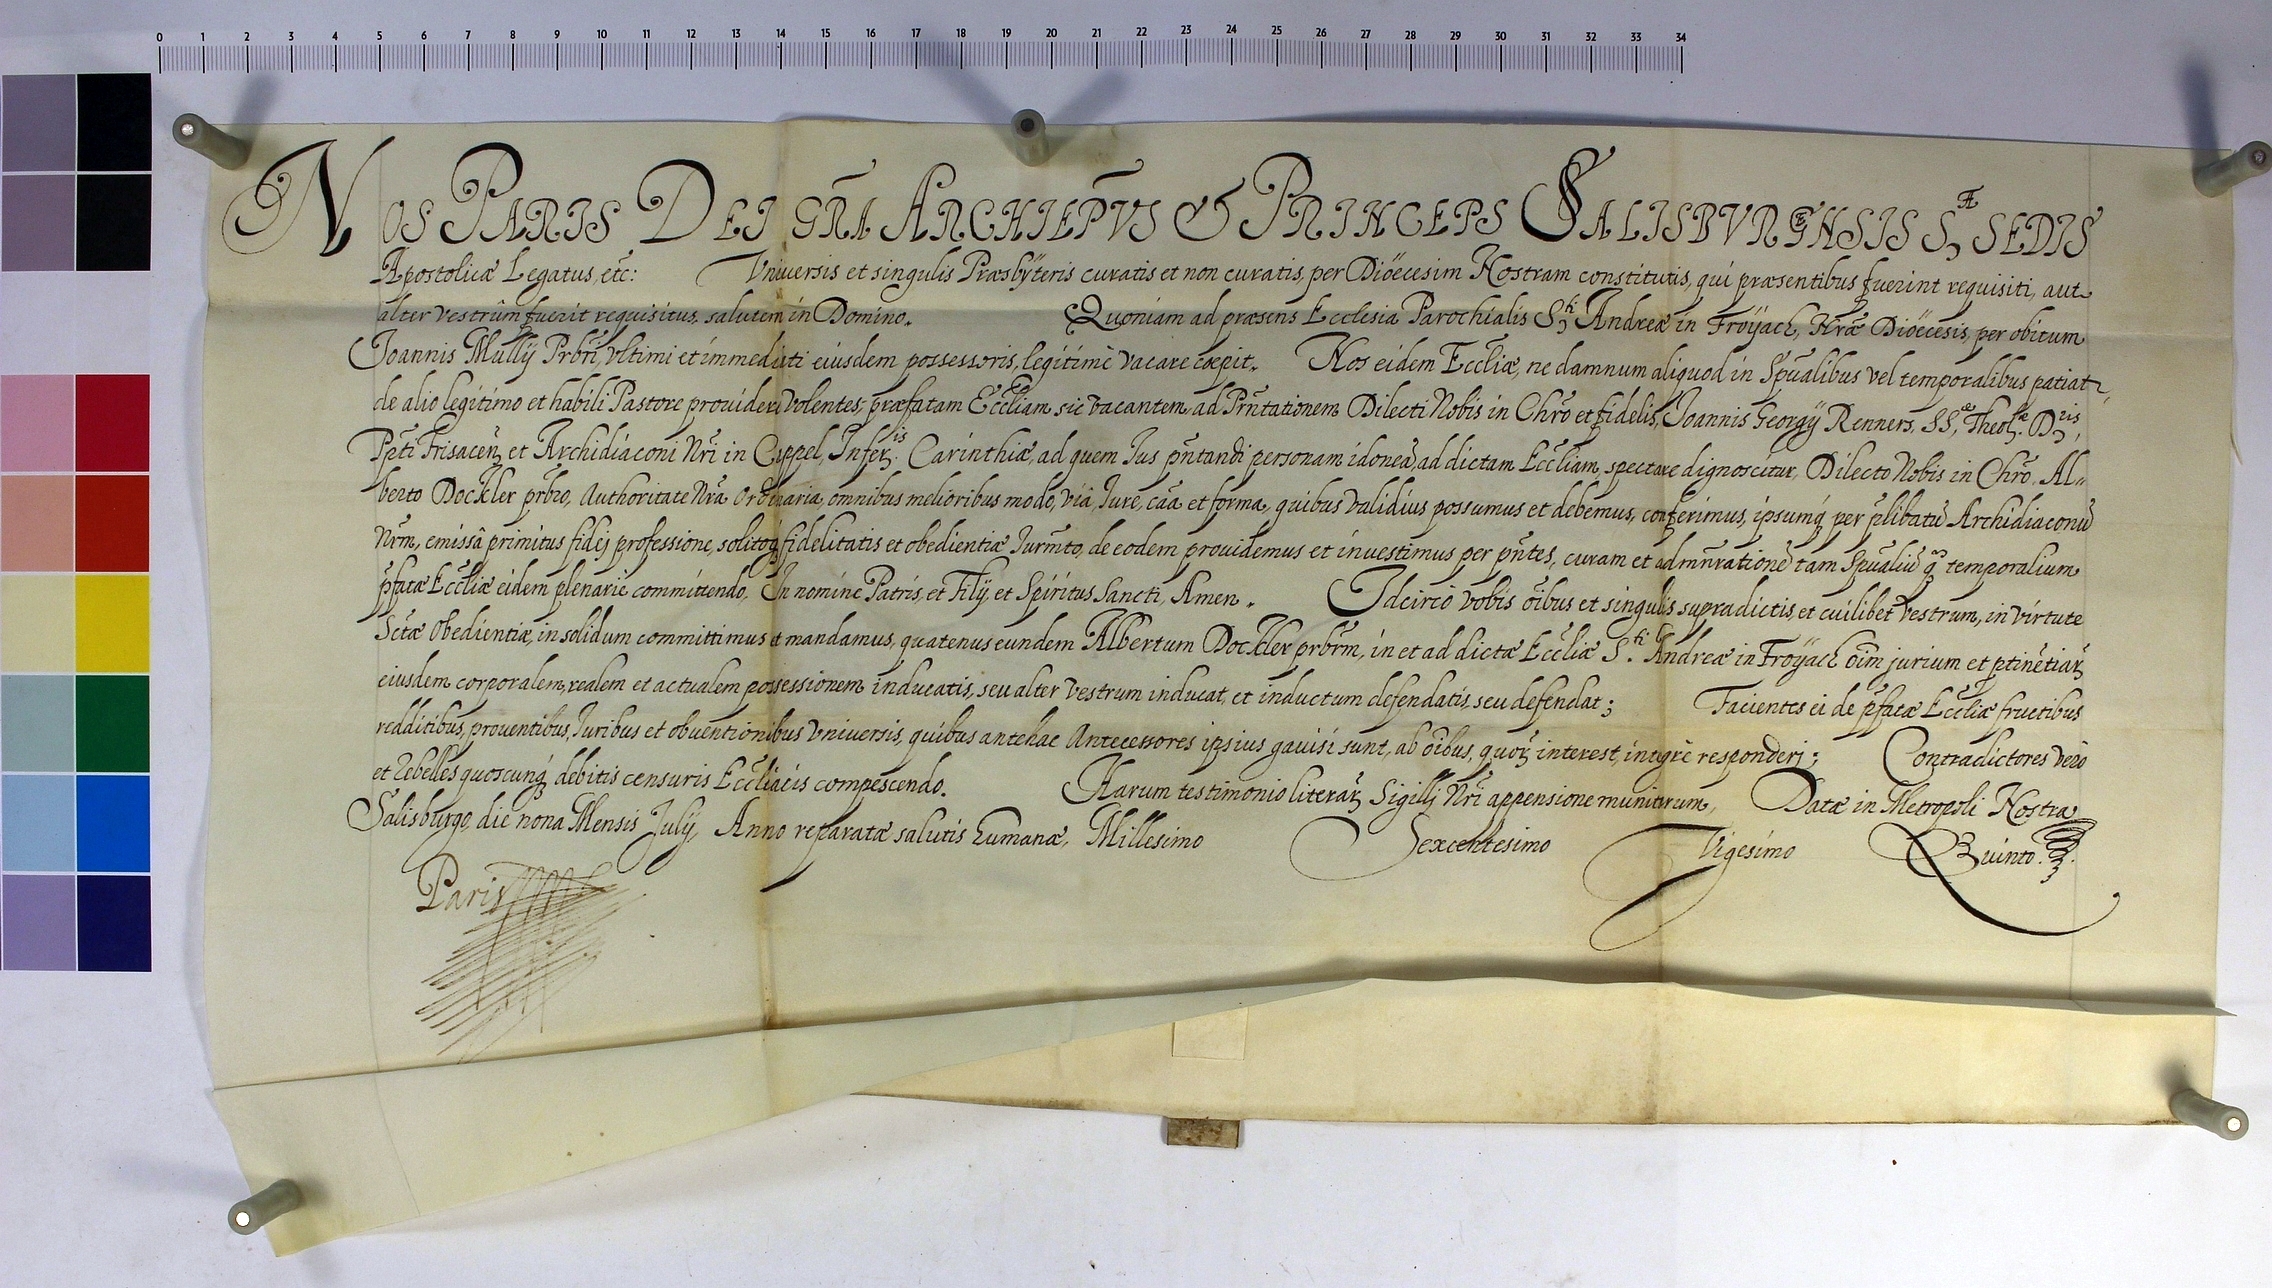 0 1 2 3 4 5 6 7 8 9 10 11 12 13 14 15 16 17 18 19 20 21 22 23 24 25 26 27 28 29 30 31 32 33 34
NOS PARIS DEI GRĀ ARCHIEPVS & PRINCEPS SALISBVRGENSIS S.A SEDIS
Apostolicæ Legatus, etc: Vniuersis et singulis Præsbÿteris curatis et non curatis, per Diöecesim Nostram constitutis, qui præsentibus fuerint requisiti, aut
alter vestrûm fuerit requisitus, salutem in Domino. Quoniam ad præsens Ecclesia Parochialis S.ti Andreæ in Froÿach, Nræ Diöecesis, per obitum
Joannis Mullÿ Prb̄ri, vltimi et immediati eiusdem possessoris, legitimè vacare cœpit. Nos eidem Eccl̄iæ, ne damnum aliquod in Sp̄ualibus vel temporalibus patiatr,
de alio legitimo et habili Pastore prouideri volentes, præfatam Eccl̄iam sic vacantem, ad Prn̄tationem Dilecti Nobis in Chr̄o et fidelis, Joannis Georgÿ Renners, SS.æ Theol.æ D.ris,
Pp̄ti Frisacen̄ et Archidiaconi Nr̄i in Cappel, Infer.is Carinthiæ, ad quem Jus pn̄tandi personam idoneā, ad dictam Eccl̄iam, spectare dignoscitur, Dilecto Nobis in Chr̄o, Al=
berto Dockler pr̄bro, Authoritate Nr̄a Ordinaria, omnibus melioribus modo, viâ, Jure, cāa et forma, quibus validius possumus et debemus, conferimus, ipsumq́ per p̄libatū Archidiaconū
Nr̄m, emissâ primitus fidej professione, solitoq́ fidelitatis et obedientiæ Jurm̄to, de eodem prouidemus et inuestimus per pn̄tes, curam et admn̄rationē tam Sp̄ualiū q̄ temporalium
p̄fatæ Eccl̄iæ eidem plenarie committendo, In nomine Patris, et Filÿ, et Spiritus Sancti, Amen. Idcirco vobis ōibus et singulis supradictis, et cuilibet vestrum, in virtute
Sctæ Obedientiæ, in solidum committimus et mandamus, quatenus eundem Albertum Dockler prb̄rm, in et ad dictæ Eccl̄iæ S.ti Andreæ in Froÿach ōim jurium et p̄tinētiar̄
eiusdem corporalem, realem et actualem possessionem inducatis, seu alter vestrum inducat, et inductum defendatis, seu defendat; Facientes ei de p̄fatæ Eccl̄iæ fructibus
redditibus, prouentibus, Juribus et obuentionibus vniuersis, quibus antehac Antecessores ipsius gauisi sunt, ab ōibus, quor̄ interest, integrè responderj; Contradictores verò
et rebelles quoscunq́ debitis censuris Eccl̄iacis compescendo. Harum testimonio literar̄ Sigillj Nr̄i appensione munitarum, Datæ in Metropoli Nostra
Salisburgo, die nona Mensis Julÿ, Anno reparatæ salutis humanæ, Millesimo Sexcentesimo Vigesimo Quinto.
Paris